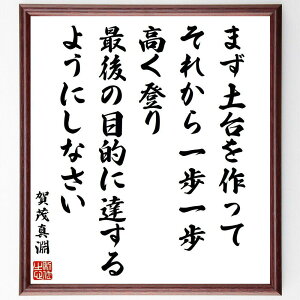 まず土台を作って
それから一歩一歩
高く登り
最後の目的に達する
ようにしなさい
賀茂真淵